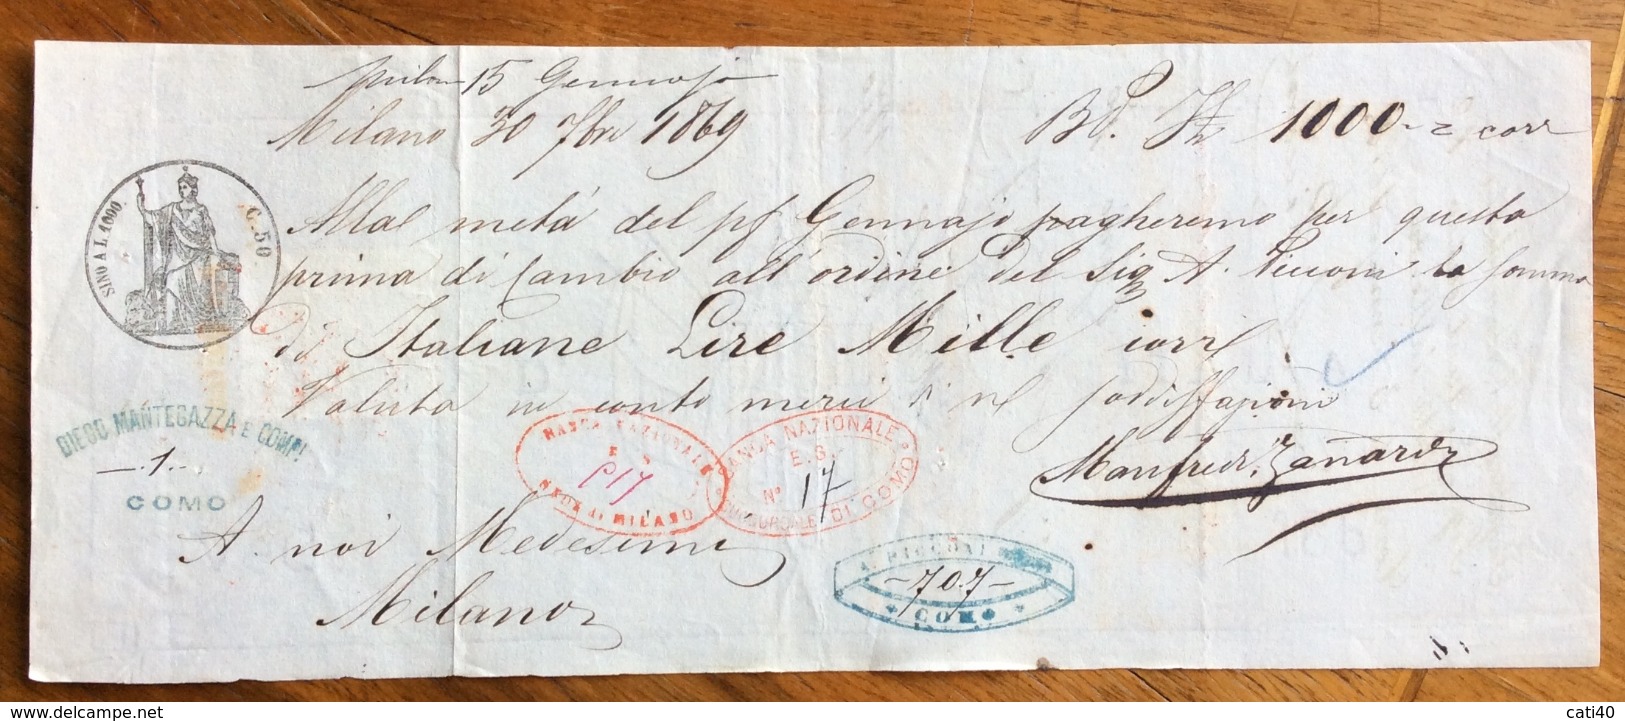 15 Gennajo
Milano 30 7bre 1869 Bd. It 1000 - corr
SINO A L.1000
C.50
Alla metà del pf Gennajo pagheremo per questa
prima di Cambio all'ordine del Sig A. Picconi la somma
di Italiane Lire Mille corr
Valuta in conto merci soddisfazioni
DIEGO MANTEGAZZA E COMP.
-1-
COMO
BANCA NAZIONALE
SEDE di MILANO
BANCA NAZIONALE
E.S.
N° 17
SUCCURSALE DI COMO
Manfredi Zanardi
A noi Medesimi
Milano
A. PICCONI
-707-
COMO
www.delcampe.net
cati40